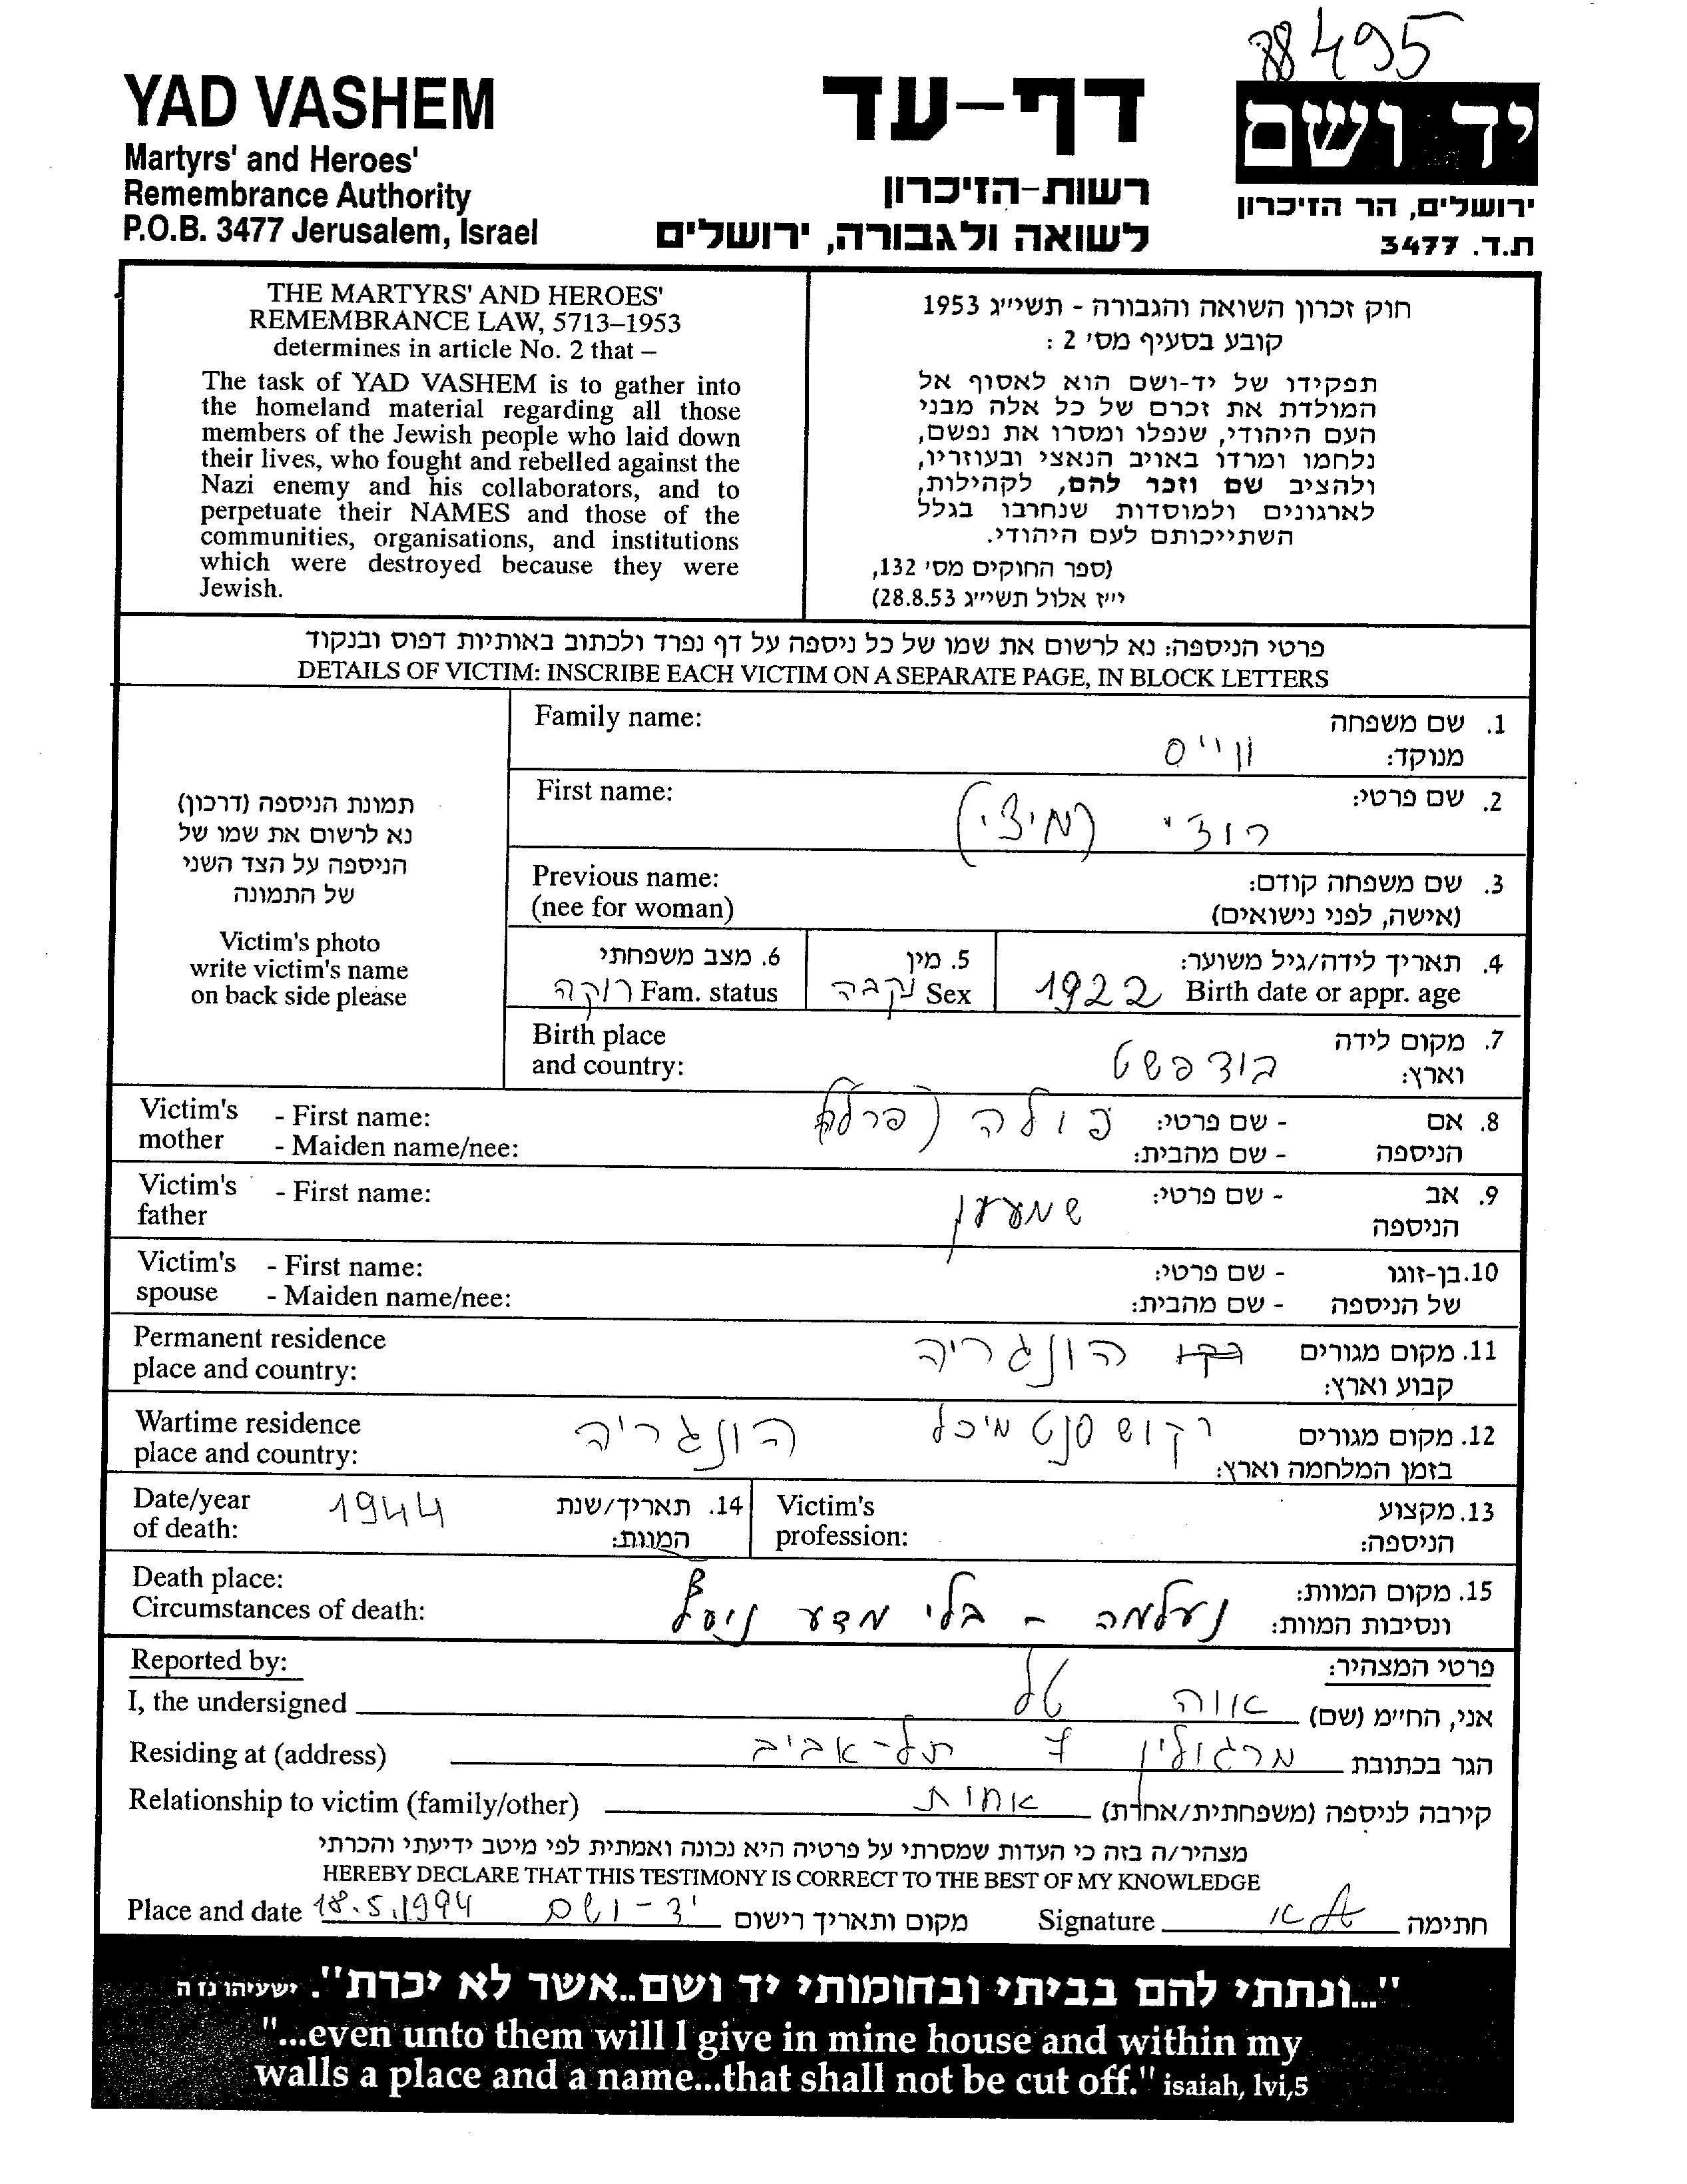 88495
YAD VASHEM
Martyrs' and Heroes'
Remembrance Authority
P.O.B. 3477 Jerusalem, Israel
דף-עד
רשות-הזיכרון
לשואה ולגבורה, ירושלים
יד ושם
ירושלים, הר הזיכרון
ת.ד. 3477
THE MARTYRS' AND HEROES'
REMEMBRANCE LAW, 5713–1953
determines in article No. 2 that –
The task of YAD VASHEM is to gather into
the homeland material regarding all those
members of the Jewish people who laid down
their lives, who fought and rebelled against the
Nazi enemy and his collaborators, and to
perpetuate their NAMES and those of the
communities, organisations, and institutions
which were destroyed because they were
Jewish.
חוק זכרון השואה והגבורה - תשי״ג 1953
קובע בסעיף מס׳ 2 :
תפקידו של יד-ושם הוא לאסוף אל
המולדת את זכרם של כל אלה מבני
העם היהודי, שנפלו ומסרו את נפשם,
נלחמו ומרדו באויב הנאצי ובעוזריו,
ולהציב שם וזכר להם, לקהילות,
לארגונים ולמוסדות שנחרבו בגלל
השתייכותם לעם היהודי.
(ספר החוקים מס׳ 132,
י״ז אלול תשי״ג 28.8.53)
פרטי הניספה: נא לרשום את שמו של כל ניספה על דף נפרד ולכתוב באותיות דפוס ובנקוד
DETAILS OF VICTIM: INSCRIBE EACH VICTIM ON A SEPARATE PAGE, IN BLOCK LETTERS
תמונת הניספה (דרכון)
נא לרשום את שמו של
הניספה על הצד השני
של התמונה
Victim's photo
write victim's name
on back side please
Family name: 1. שם משפחה
מנוקד: וייס
First name: 2. שם פרטי: רוצי (מיצי)
Previous name: 3. שם משפחה קודם:
(nee for woman) (אישה, לפני נישואים)
4. תאריך לידה/גיל משוער:
Birth date or appr. age 1922
5. מין
Sex נקבה
6. מצב משפחתי
Fam. status רווקה
Birth place 7. מקום לידה
and country: וארץ: בודפשט
Victim's - First name: 8. אם - שם פרטי: פולה
mother - Maiden name/nee: הניספה - שם מהבית:
Victim's - First name: 9. אב - שם פרטי: שמעון
father הניספה
Victim's - First name: 10. בן-זוגו - שם פרטי:
spouse - Maiden name/nee: של הניספה - שם מהבית:
Permanent residence 11. מקום מגורים הונגריה
place and country: קבוע וארץ:
Wartime residence 12. מקום מגורים רקושסנטמיכל הונגריה
place and country: בזמן המלחמה וארץ:
13. מקצוע Victim's
הניספה: profession:
14. תאריך/שנת 1944 Date/year
המוות: of death:
Death place: 15. מקום המוות:
Circumstances of death: ונסיבות המוות: נעלמה - בלי מדע נוסף
Reported by: פרטי המצהיר:
I, the undersigned אני, החי״מ (שם) אווה טל
Residing at (address) הגר בכתובת מרגולין 7 תל-אביב
Relationship to victim (family/other) קירבה לניספה (משפחתית/אחרת) אחות
מצהיר/ה בזה כי העדות שמסרתי על פרטיה היא נכונה ואמתית לפי מיטב ידיעתי והכרתי
HEREBY DECLARE THAT THIS TESTIMONY IS CORRECT TO THE BEST OF MY KNOWLEDGE
Place and date 18.5.1994 יד-ושם מקום ותאריך רישום Signature חתימה
"...ונתתי להם בביתי ובחומותי יד ושם..אשר לא יכרת". ישעיהו נז ה
"...even unto them will I give in mine house and within my
walls a place and a name...that shall not be cut off." isaiah, lvi,5